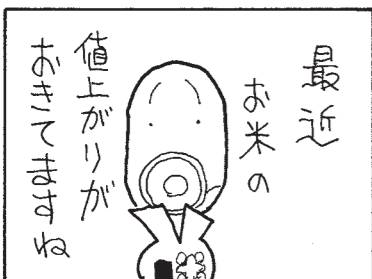 最近
お米の
値上がりが
おきてますね